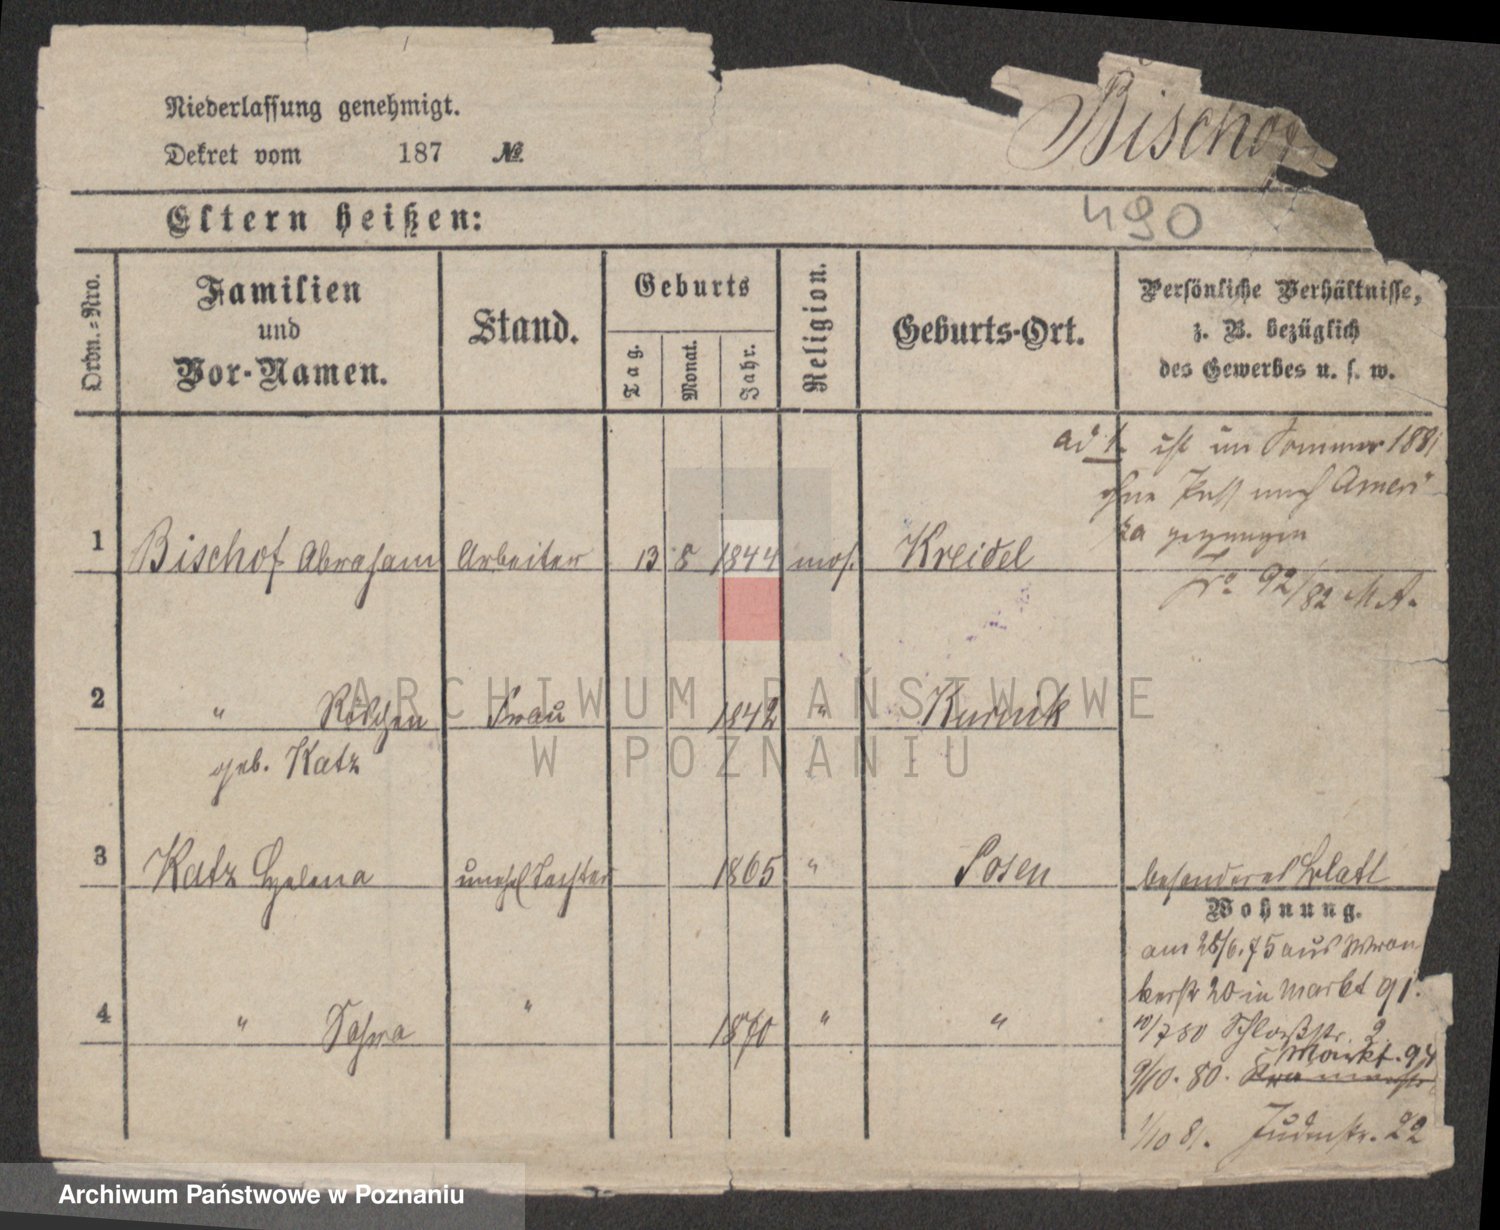 Niederlassung genehmigt.
Dekret vom 187 №
Bischof
Eltern heißen:
490
Ordn.=Nro.
Familien
und
Vor-Namen.
Stand.
Geburts
Tag.
Monat.
Jahr.
Religion.
Geburts-Ort.
Persönliche Verhältnisse,
z. B. bezüglich
des Gewerbes u. s. w.
ad 1. ist im Sommer 1881
ohne Paß nach Ameri
ka gegangen
92/82 M. A.
1 Bischof Abraham Arbeiter 13 8 1844 mos. Kreidel
2 " Röschen Frau 1842 " Kurnik
geb. Katz
3 Katz Helena unehel Tochter 1865 " Posen besonderes Blatt
Wohnung.
am 28/6.75 aus Wron
kerstr 20 in Markt 91.
4 " 1870 " "
10/7 80 Schloßstr. 2
Markt. 94
9/10. 80.
1/10 81. Judenstr. 22
ARCHIWUM PAŃSTWOWE
W POZNANIU
Archiwum Państwowe w Poznaniu